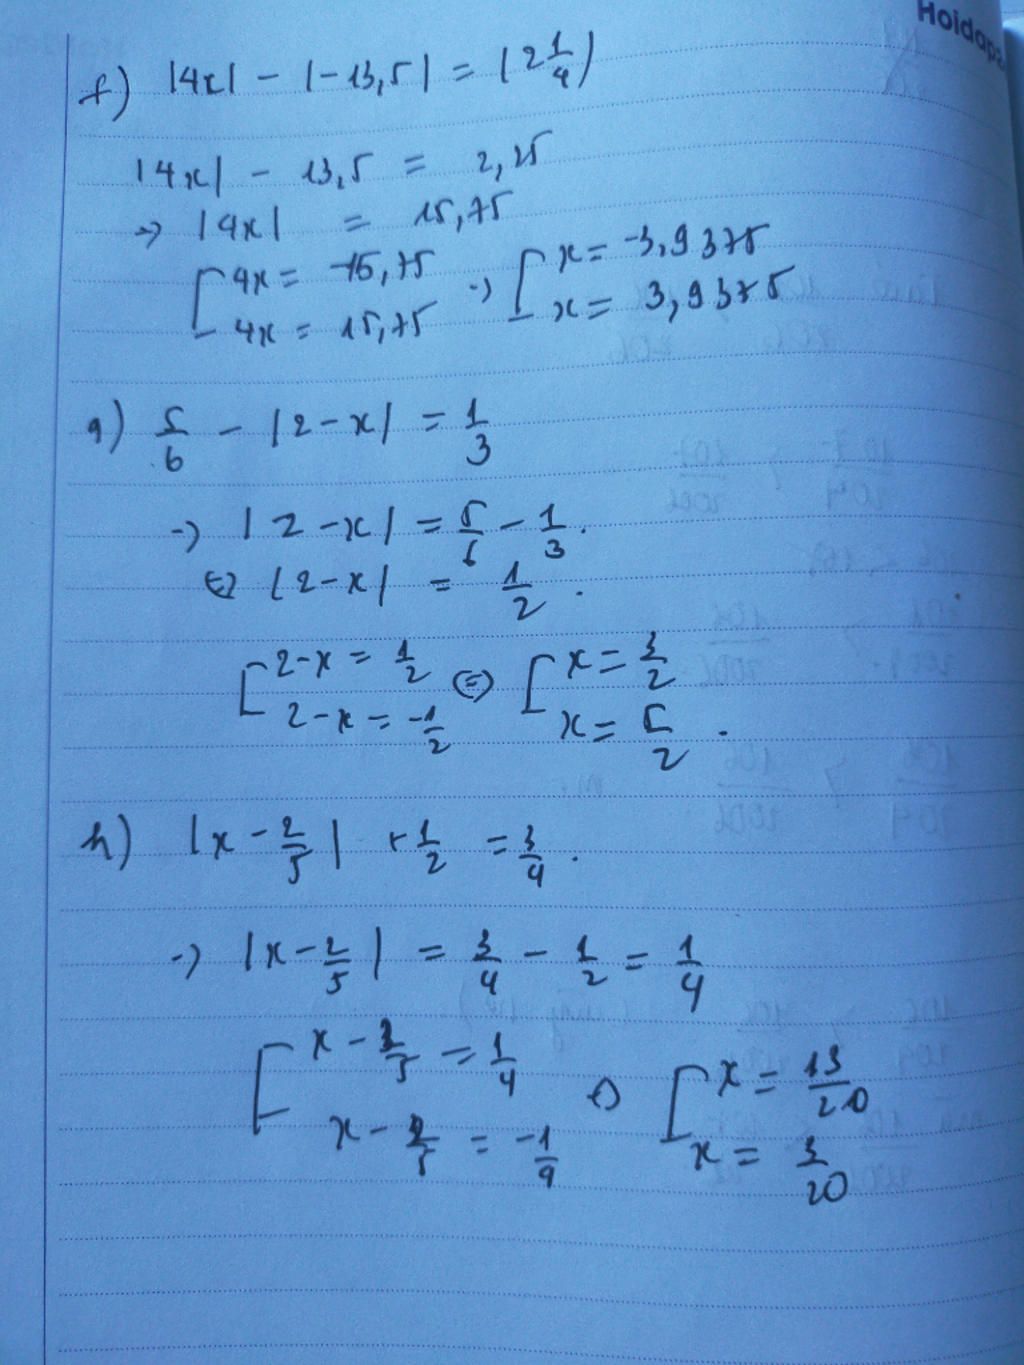 Hoidap
f) |4x| - |-13,5| = |2 1/4|
|4x| - 13,5 = 2,25
→ |4x| = 15,75
[ 4x = -15,75 → [ x = -3,9375
4x = 15,75 x = 3,9375
g) 5/6 - |2-x| = 1/3
→ |2-x| = 5/6 - 1/3.
⇔ |2-x| = 1/2.
[ 2-x = 1/2 ⇔ [ x = 3/2
2-x = -1/2 x = 5/2.
h) |x - 2/5| + 1/2 = 3/4.
→ |x - 2/5| = 3/4 - 1/2 = 1/4
[ x - 2/5 = 1/4 ⇔ [ x = 13/20
x - 2/5 = -1/4 x = 3/20